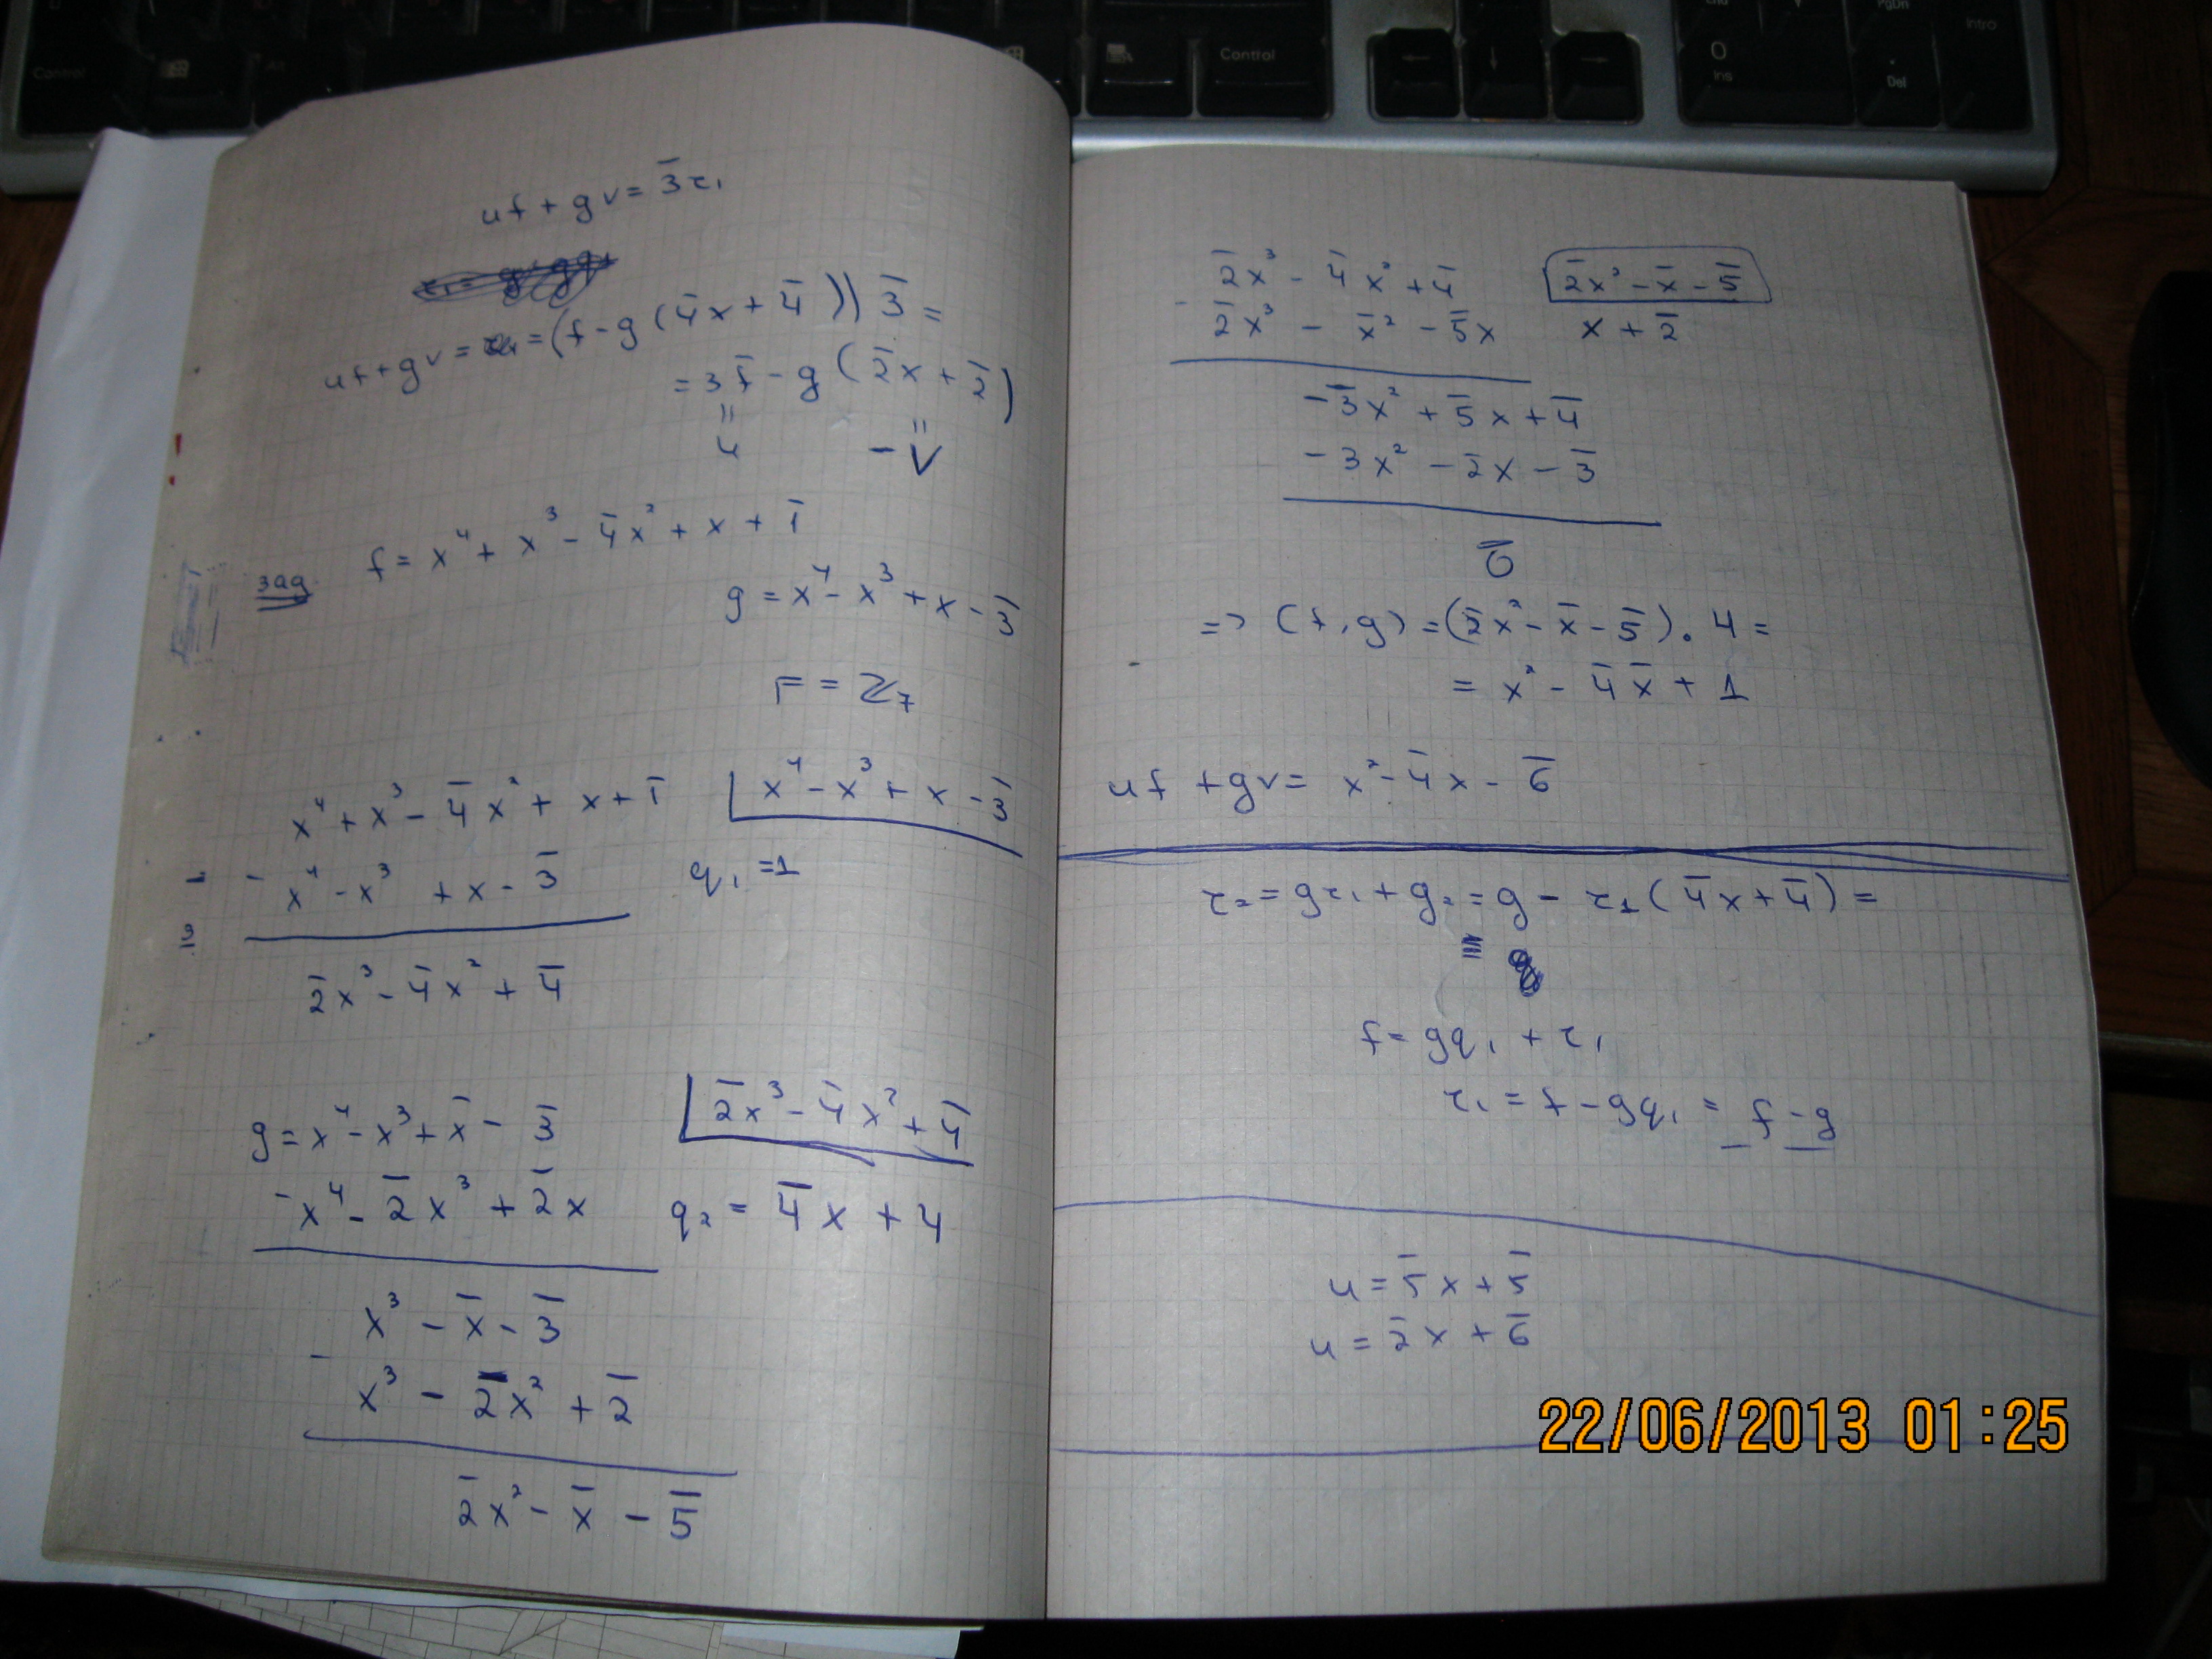 Control
Alt
Control
←
↓
→
0
Ins
PgDn
.
Del
Intro
uf + gv = 3̄r₁
uf + gv = r₁ = (f - g(4̄x + 4̄)) 3̄ =
= 3f̄ - g(2̄x + 2̄)
" "
u - v
зад f = x⁴ + x³ - 4̄x² + x + 1̄
g = x⁴ - x³ + x - 3̄
F = ℤ₇
x⁴ + x³ - 4̄x² + x + 1̄ | x⁴ - x³ + x - 3̄
- x⁴ - x³ + x - 3̄ q₁ = 1
2̄x³ - 4̄x² + 4̄
g = x⁴ - x³ + x̄ - 3̄ | 2̄x³ - 4̄x² + 4̄
- x⁴ - 2̄x³ + 2̄x q₂ = 4̄x + 4
x³ - x̄ - 3̄
- x³ - 2̄x² + 2̄
2̄x² - x̄ - 5̄
2̄x³ - 4̄x² + 4̄ | 2̄x² - x̄ - 5̄
- 2̄x³ - x̄² - 5̄x x + 2̄
- 3̄x² + 5̄x + 4̄
- 3x² - 2̄x - 3̄
0̄
=> (f, g) = (2̄x² - x̄ - 5̄) . 4 =
= x² - 4̄x̄ + 1
uf + gv = x² - 4̄x - 6̄
r₂ = gr₁ + g₂ = g - r₁(4̄x + 4̄) =
=
f = gq₁ + r₁
r₁ = f - gq₁ = f - g
u = 5̄x + 5̄
u = 2̄x + 6̄
22/06/2013 01:25